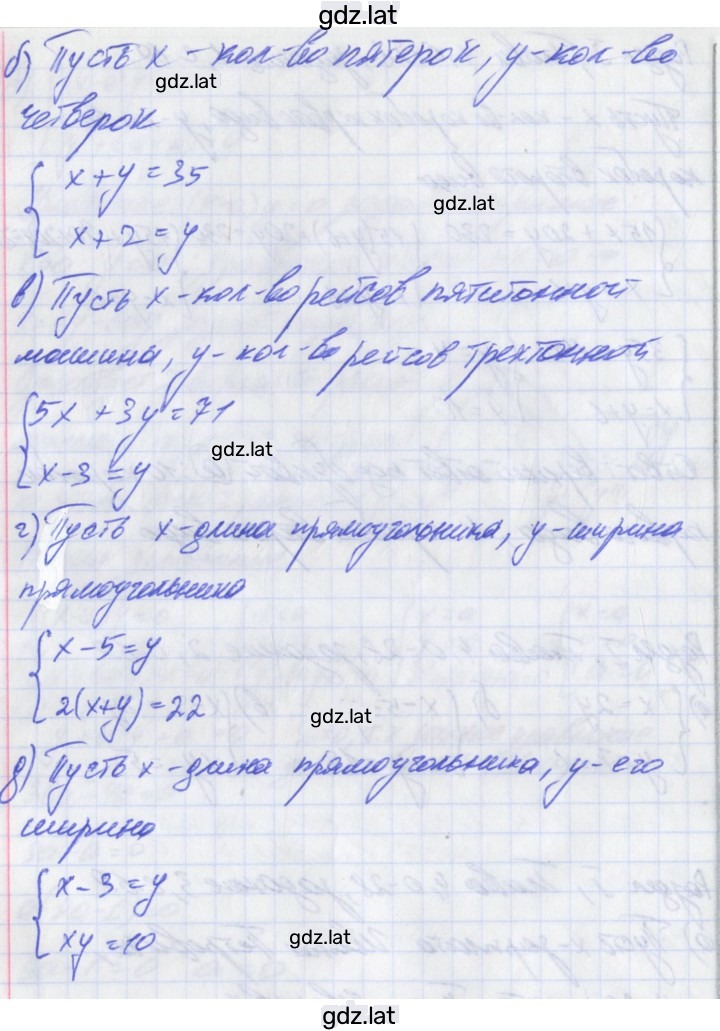 gdz.lat
б) Пусть x - кол-во пятерок, y-кол-во
gdz.lat
четверок
x+y=35
gdz.lat
x+2=y
в) Пусть x-кол-во рейсов пятитонной
машина, y-кол-во рейсов трехтонной
5x+3y=71
gdz.lat
x-3=y
г) Пусть x-длина прямоугольника, y-ширина
прямоугольника
x-5=y
2(x+y)=22
gdz.lat
д) Пусть x-длина прямоугольника, y-его
ширина
x-3=y
xy=10
gdz.lat
gdz.lat